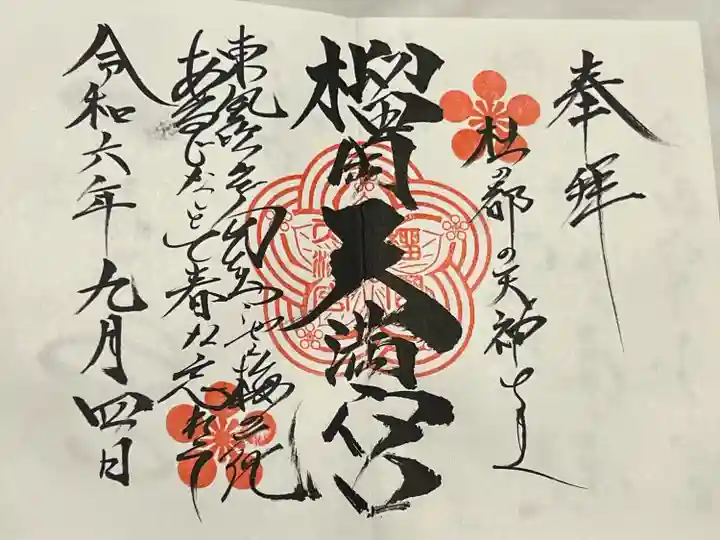 奉拝
杜の都の天神さま
榴岡天満宮
東風吹かば匂ひおこせよ梅の花
あるじなしとて春な忘れそ
令和六年九月四日